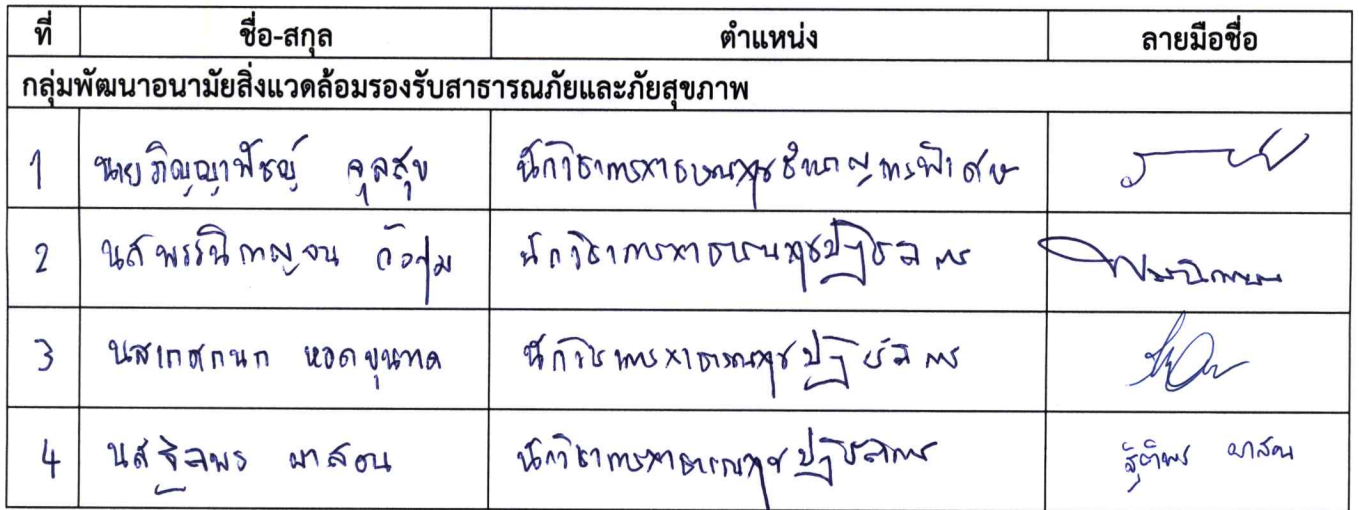 ที่ ชื่อ-สกุล ตำแหน่ง ลายมือชื่อ
กลุ่มพัฒนาอนามัยสิ่งแวดล้อมรองรับสาธารณภัยและภัยสุขภาพ
1 นายภิญญาพัชญ์ จุลสุข นักวิชาการสาธารณสุขชำนาญการพิเศษ
2 นส นักวิชาการสาธารณสุขปฏิบัติการ
3 นส นักวิชาการสาธารณสุขปฏิบัติการ
4 นส ฐิติพร ผาสอน นักวิชาการสาธารณสุขปฏิบัติการ ฐิติพร ผาสอน